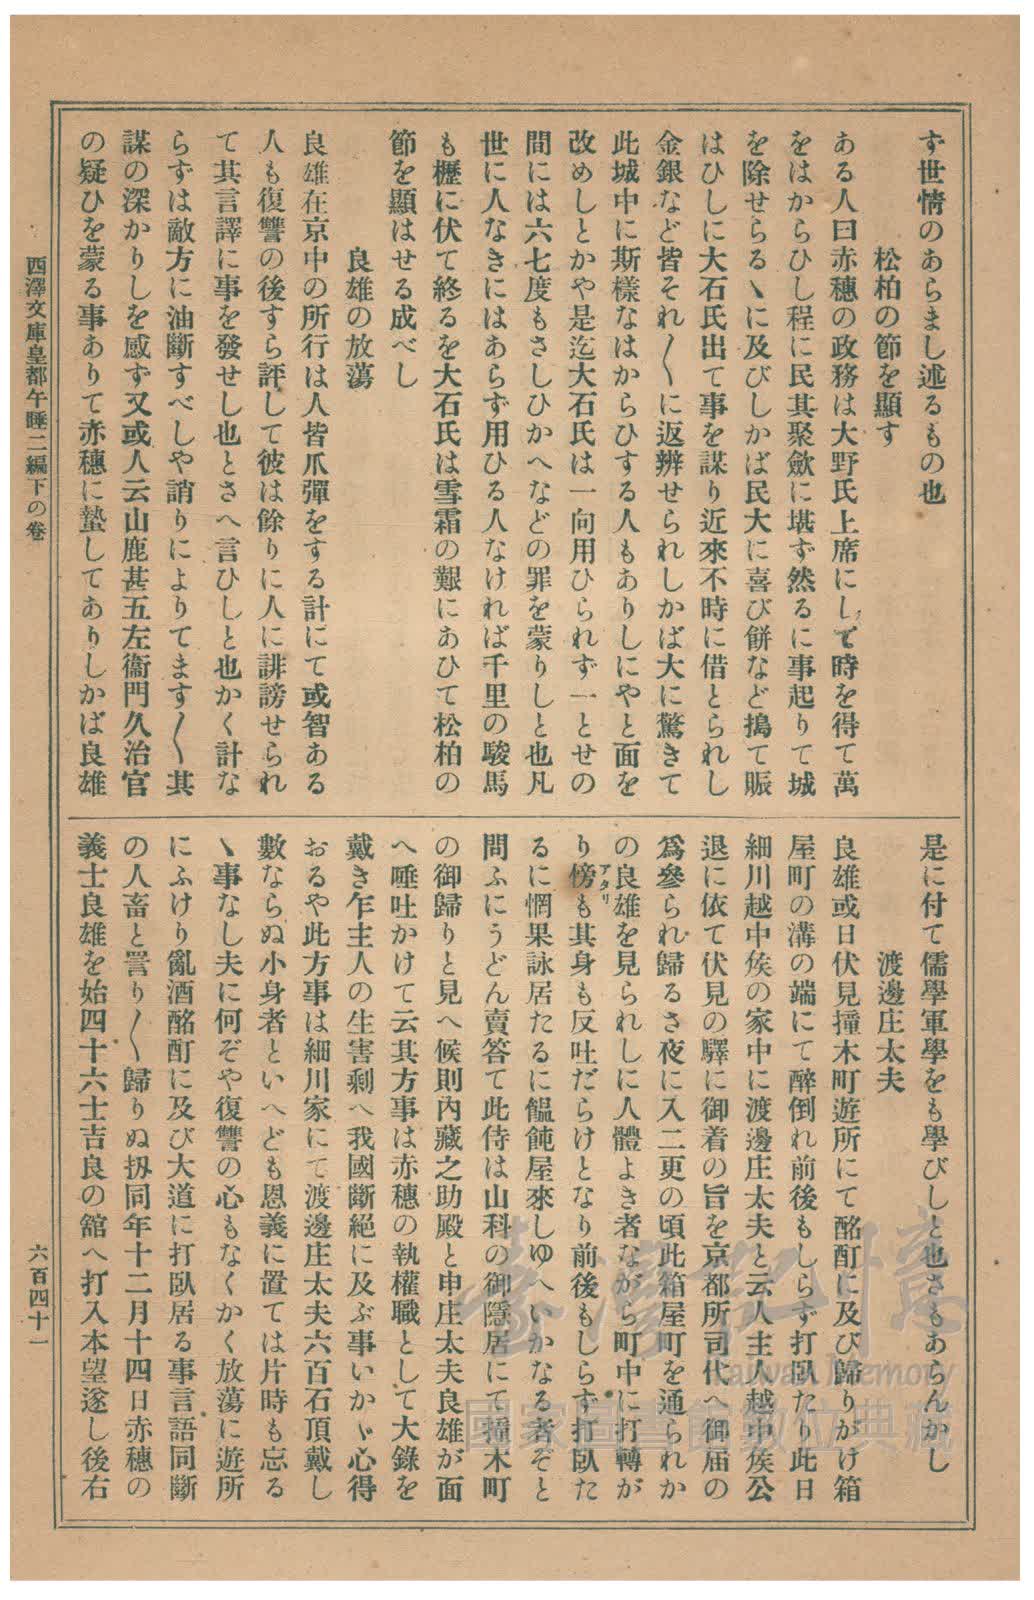 ず世情のあらまし述るもの也
松柏の節を顯す
ある人曰赤穗の政務は大野氏上席にして時を得て萬
をはからひし程に民其聚歛に堪ず然るに事起りて城
を除せらるゝに及びしかば民大に喜び餅など搗て賑
はひしに大石氏出て事を謀り近來不時に借とられし
金銀など皆それ〳〵に返辨せられしかば大に驚きて
此城中に斯樣なはからひする人もありしにやと面を
改めしとかや是迄大石氏は一向用ひられず一とせの
間には六七度もさしひかへなどの罪を蒙りしと也凡
世に人なきにはあらず用ひる人なければ千里の駿馬
も櫪に伏て終るを大石氏は雪霜の艱にあひて松柏の
節を顯はせる成べし
良雄の放蕩
良雄在京中の所行は人皆爪彈をする計にて或智ある
人も復讐の後すら評して彼は餘りに人に誹謗せられ
て其言譯に事を發せし也とさへ言ひしと也かく計な
らずは敵方に油斷すべしや誚りによりてます〳〵其
謀の深かりしを感ず又或人云山鹿甚五左衞門久治官
の疑ひを蒙る事ありて赤穗に蟄してありしかば良雄
是に付て儒學軍學をも學びしと也さもあらんかし
渡邊庄太夫
良雄或日伏見撞木町遊所にて酩酊に及び歸りがけ箱
屋町の溝の端にて醉倒れ前後もしらず打臥たり此日
細川越中矦の家中に渡邊庄太夫と云人主人越中矦公
退に依て伏見の驛に御着の旨を京都所司代へ御届の
爲參られ歸るさ夜に入二更の頃此箱屋町を通られか
の良雄を見られしに人體よき者ながら町中に打轉が
り傍も其身も反吐だらけとなり前後もしらず打臥た
アタリ
るに惘果詠居たるに饂飩屋來しゆへいかなる者ぞと
問ふにうどん賣答て此侍は山科の御隱居にて撞木町
の御歸りと見へ候則內藏之助殿と申庄太夫良雄が面
へ唾吐かけて云其方事は赤穗の執權職として大錄を
戴き乍主人の生害剩へ我國斷絕に及ぶ事いかゞ心得
おるや此方事は細川家にて渡邊庄太夫六百石頂戴し
數ならぬ小身者といへども恩義に置ては片時も忘る
ゝ事なし夫に何ぞや復讐の心もなくかく放蕩に遊所
にふけり亂酒酩酊に及び大道に打臥居る事言語同斷
の人畜と詈り〳〵歸りぬ扨同年十二月十四日赤穗の
義士良雄を始四十六士吉良の舘へ打入本望遂し後右
西澤文庫皇都午睡二編下の卷
六百四十一
臺灣記憶
Taiwan Memory
國家圖書館數位典藏